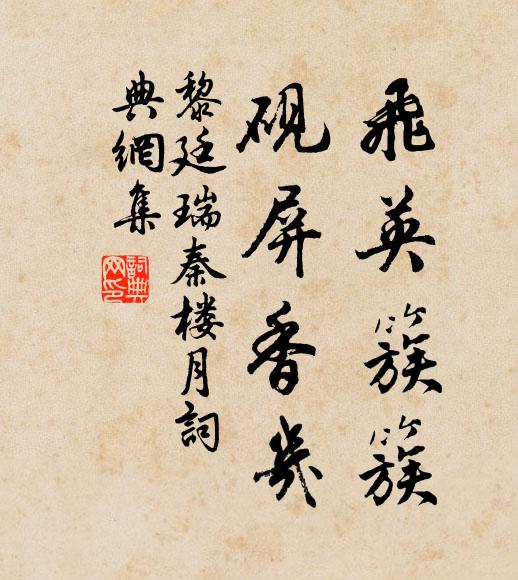 飛英簇簇
硯屏香幾
黎廷瑞秦楼月詞
典網集
詞典
网印